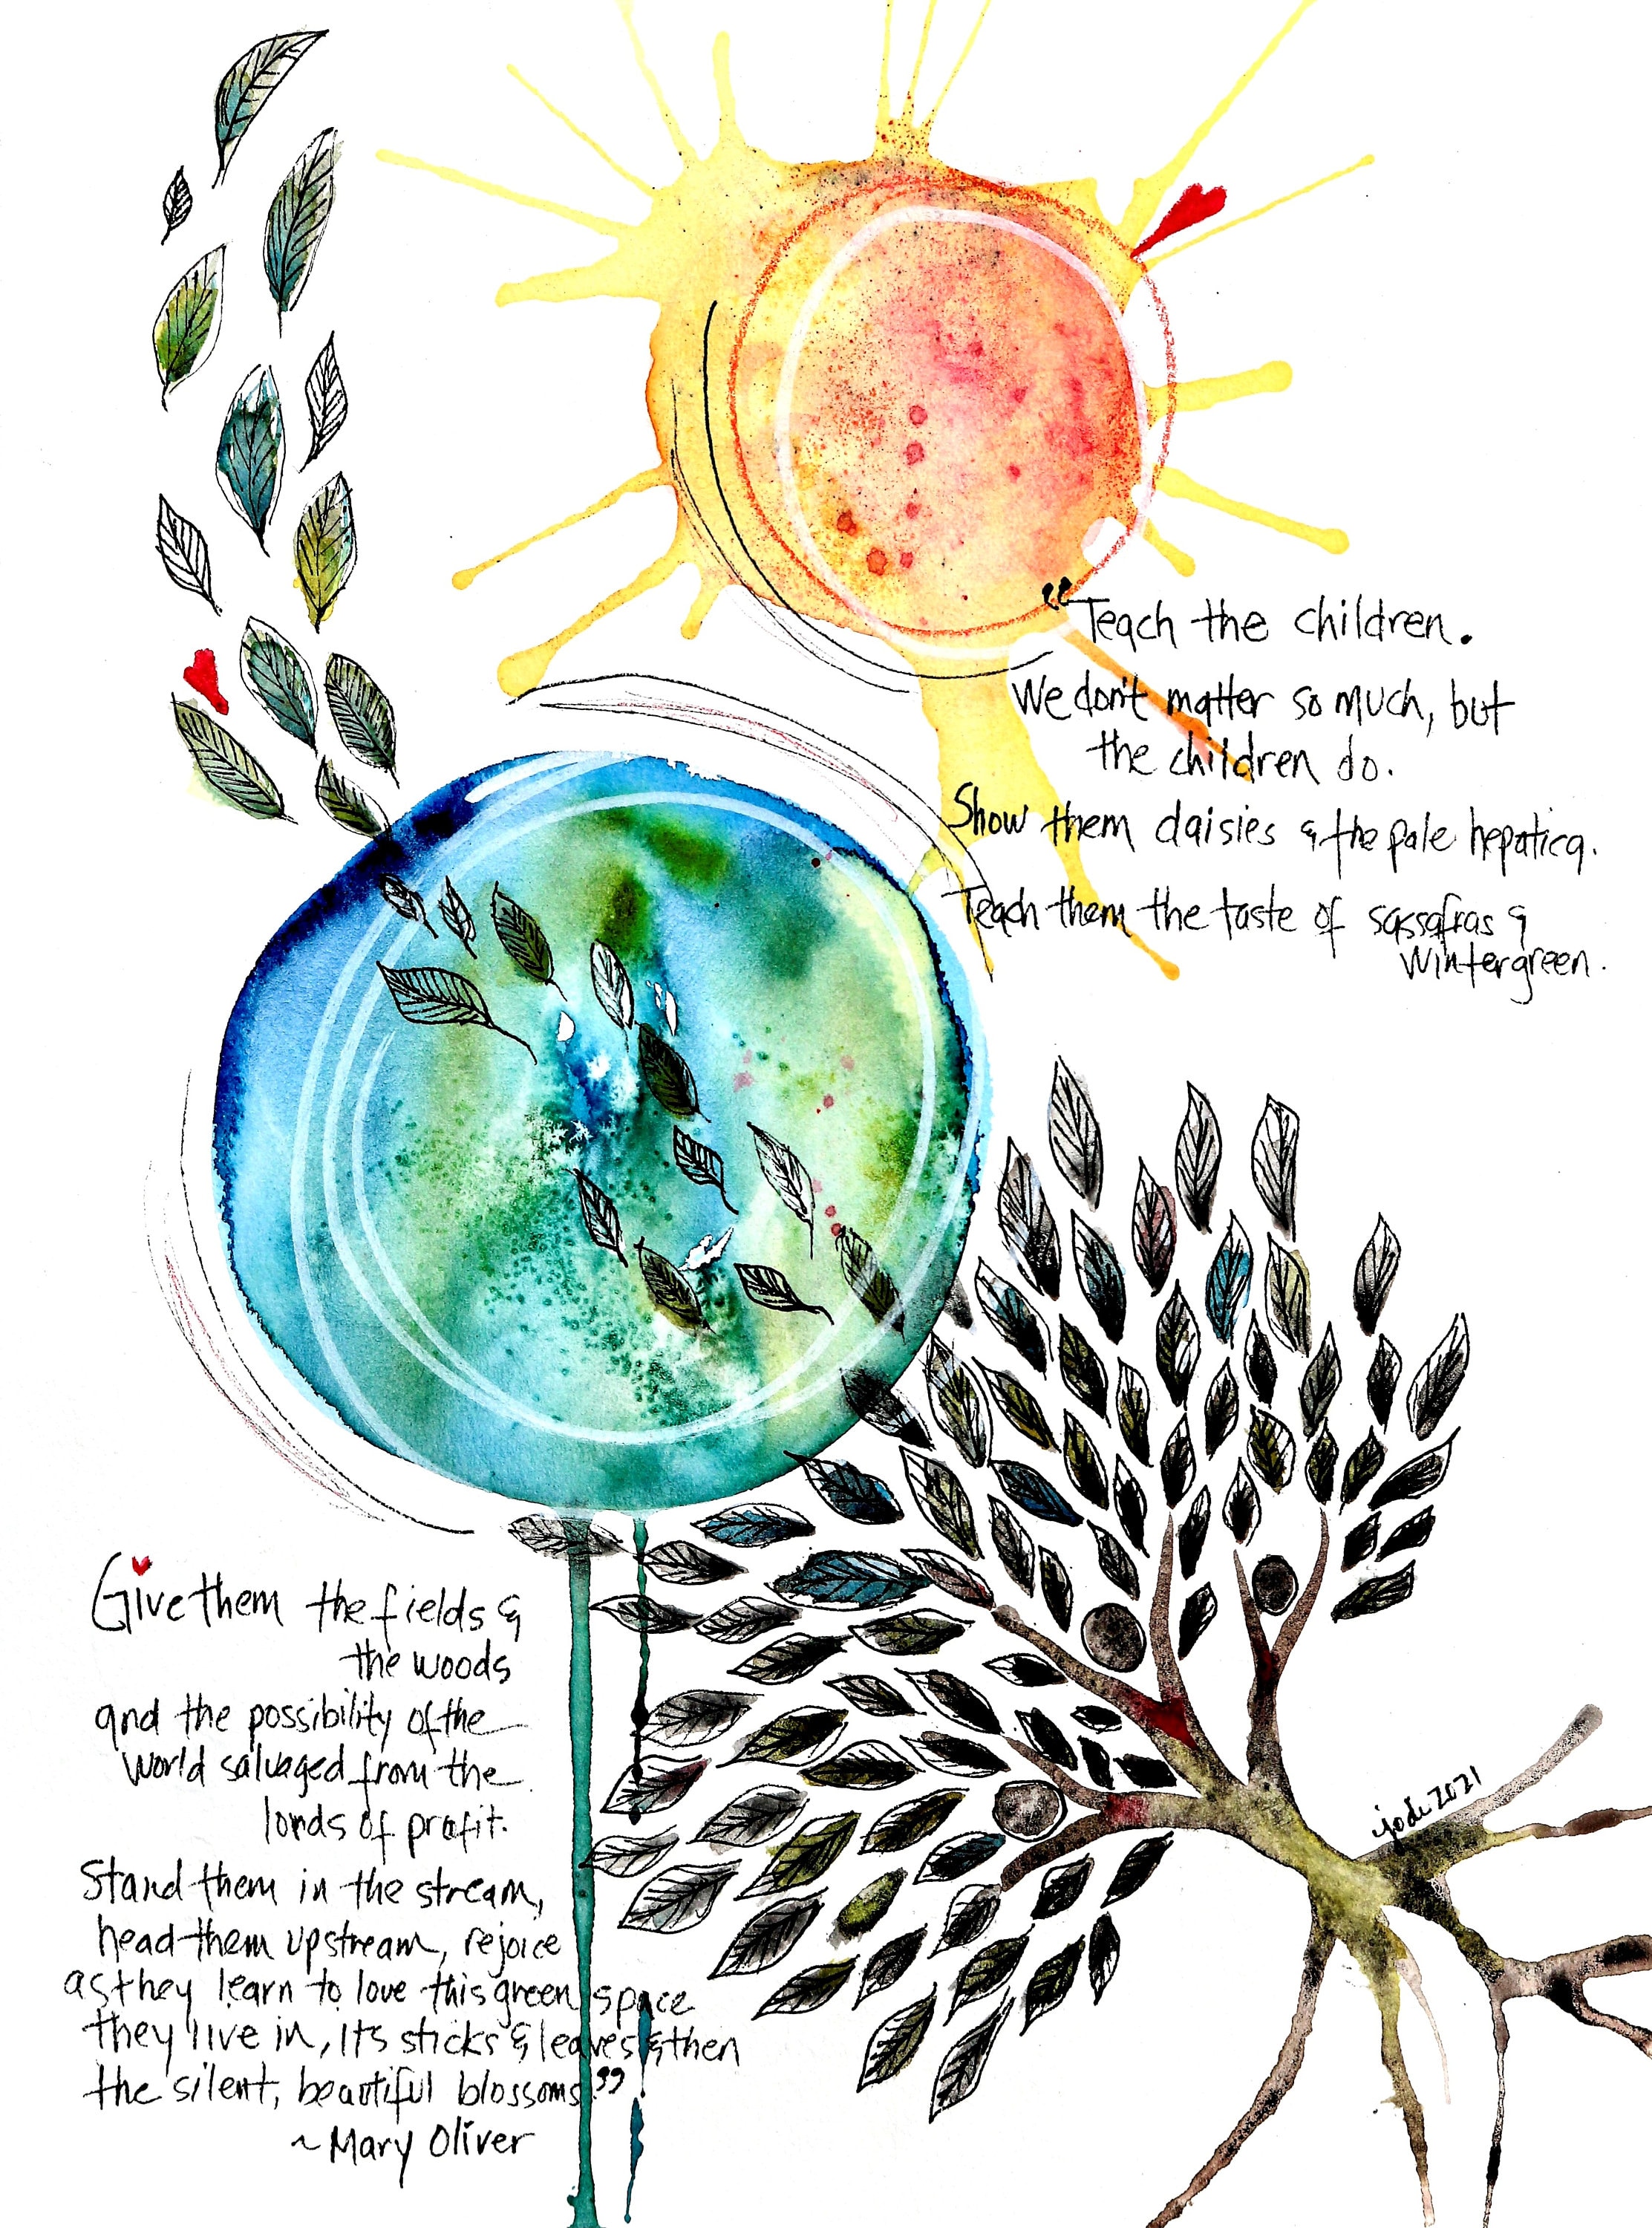 “Teach the children.
We don't matter so much, but
the children do.
Show them daisies & the pale hepatica.
Teach them the taste of sassafras &
wintergreen.
Give them the fields &
the woods
and the possibility of the
world salvaged from the
lords of profit.
Stand them in the stream,
head them upstream, rejoice
as they learn to love this green space
they live in, its sticks & leaves & then
the silent, beautiful blossoms.”
~Mary Oliver
jode 2021